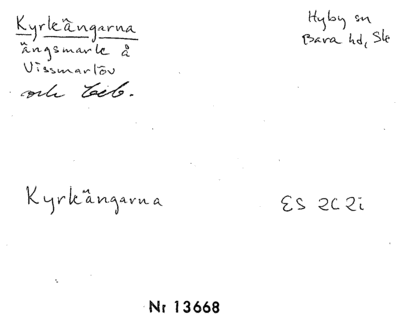 Kyrkängarna
ängsmark å
Vissmarlöv
och
Hyby sn
Bara hd, Sk
Kyrkängarna
ES 2C 2i
Nr 13668